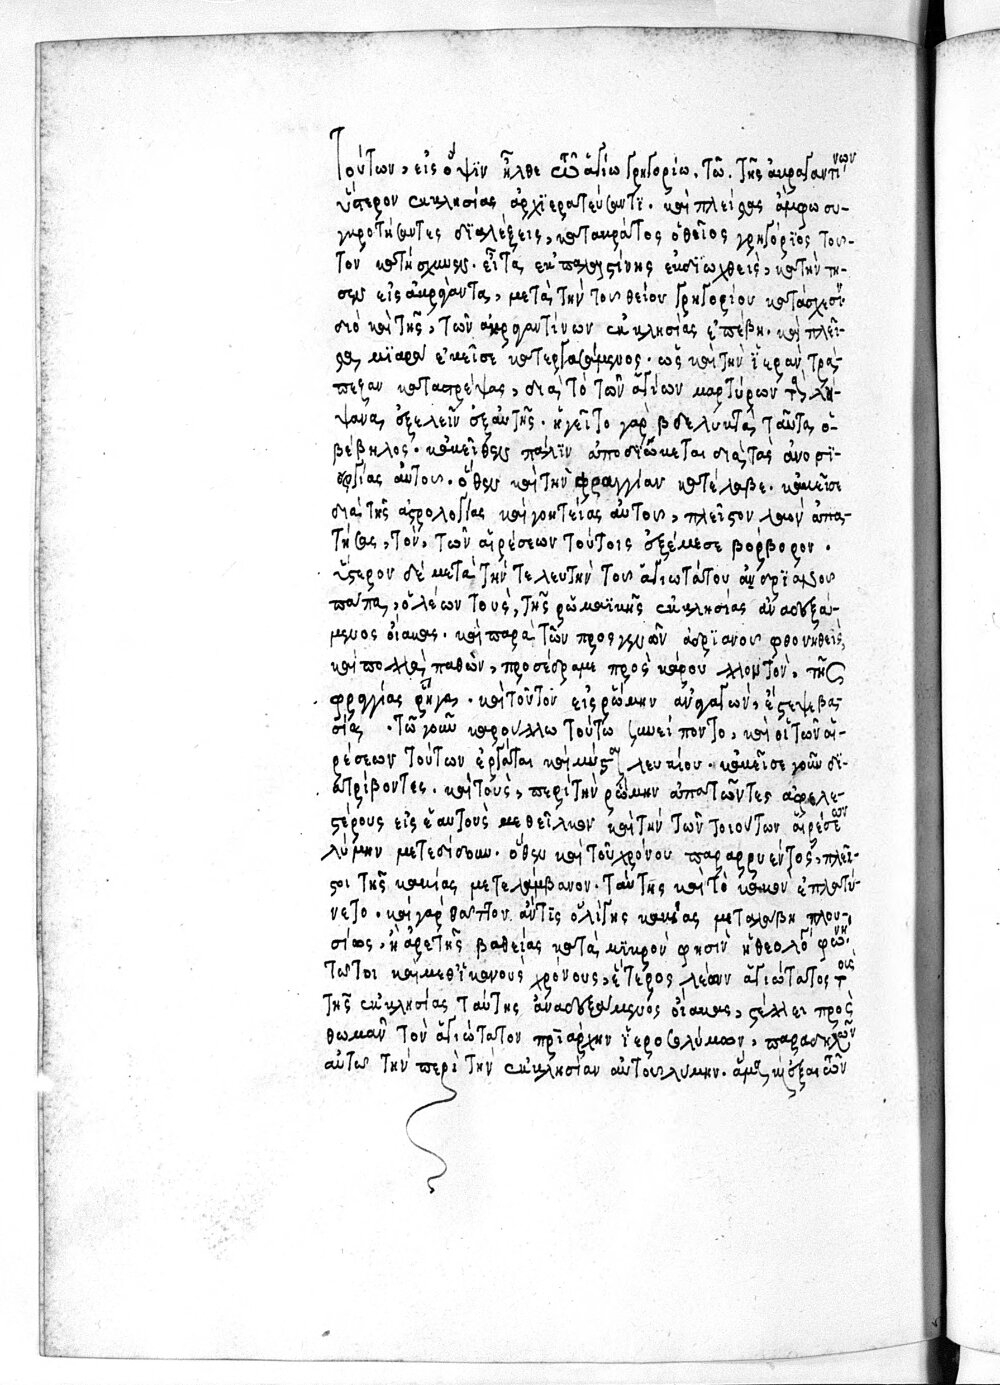 τούτων, εἰς ὄψϊν ἦλθε τῶ ἁγίω γρηγορίω, τῶ τῆς ἀκραγαντίνων
ὕστερον ἐκκλησίας ἀρχϊερατεύσαντϊ. καὶ πλείστας ἄμφω συ-
γκροτήσαντες δϊαλέξεις, κατακράτος ὁ θεῖος γρηγόρϊος τοῦ-
τον κατήσχυνεν. εἶτα ἐκ παλαιστίνης ἐκδϊωχθεὶς, κατήντη-
σεν εἰς ἀκράγαντα, μετὰ τὴν τοῦ θείου γρηγορίου κατάσχεσϊν
διὸ καὶ τῆς, τῶν ἀκραγαντίνων ἐκκλησίας ἐπέβη. καὶ πλεῖ-
στα μϊαρὰ ἐκεῖσε κατεργασάμενος. ὡς καὶ τὴν ἱερὰν τρά-
πεζαν καταστρέψας, διὰ τὸ τῶν ἁγίων μαρτύρων τὰ λεί-
ψανα ἐξελεῖν ἐξ αὐτῆς. ἡγεῖτο γὰρ βδελυκτὰ ταῦτα ὁ
βέβηλος. κἀκεῖθεν πάλϊν ἀποδϊώκεται διὰ τὰς ἀνοσϊ-
ουργίας αὐτοῦ. ὅθεν καὶ τὴν φραγγίαν κατέλαβε. κἀκεῖσε
διὰ τῆς ἀστρολογίας καὶ γοητείας αὐτοῦ, πλεῖστον λαὸν ἀπα-
τήσας, τὸν, τῶν αἱρέσεων τούτοις ἐξέμεσε βόρβορον.
ὕστερον δὲ μετὰ τὴν τελευτὴν τοῦ ἁγιωτάτου ἀνδρϊανοῦ
πάπα, ὁ λέων τοὺς, τῆς ῥωμαϊκῆς ἐκκλησίας ἀναδεξά-
μενος οἴακας. καὶ παρὰ τῶν προσγενῶν ἀδρϊανοῦ φθονηθεὶς,
καὶ πολλὰ παθὼν, προσέδραμε πρὸς κάρουλλον τὸν, τῆς
φραγγίας ῥῆγα. καὶ τοῦτον εἰς ῥώμην ἀναγαγὼν, ἔστεψε βα-
σιλέα. τῶ γοῦν καρούλλω τούτω συνείποντο, καὶ οἱ τῶν αἱ-
ρέσεων τούτων ἐργάται καὶ μύσται λευκίου. κἀκεῖσε γοῦν δϊ-
ατρίβοντες. καὶ τοὺς, περὶ τὴν ῥώμην ἀπατῶντες ἀφελε-
στέρους εἰς ἑαυτοὺς μεθεῖλκον καὶ τὴν τῶν τοιούτων αἱρέσεων
λύμην μετεδίδουν. ὅθεν καὶ τοῦ χρόνου παραρρυέντος, πλεῖ-
στοι τῆς κακίας μετελάμβανον. ταύτης καὶ τὸ κακὸν ἐπλατύ-
νετο. καὶ γὰρ θᾶττον ἄν τϊς ὀλίγης κακίας μεταλάβη πλου-
σίως, ἢ ἀρετῆς βαθείας κατὰ μϊκρὸν φησὶν ἡ θεολόγος φωνή.
τῶτοι καὶ μεθ' ἱκανοὺς χρόνους, ἕτερος λέων ἁγιώτατος τοὺς
τῆς ἐκκλησίας ταύτης ἀναδεξάμενος οἴακας, στέλλει πρὸς
θωμᾶν τὸν ἁγιώτατον πρϊάρχην ἱεροσολύμων, παραδηλῶν
αὐτῶ τὴν περὶ τὴν ἐκκλησίαν αὐτοῦ λύμην. ἅμα καὶ δεξαι τῶν